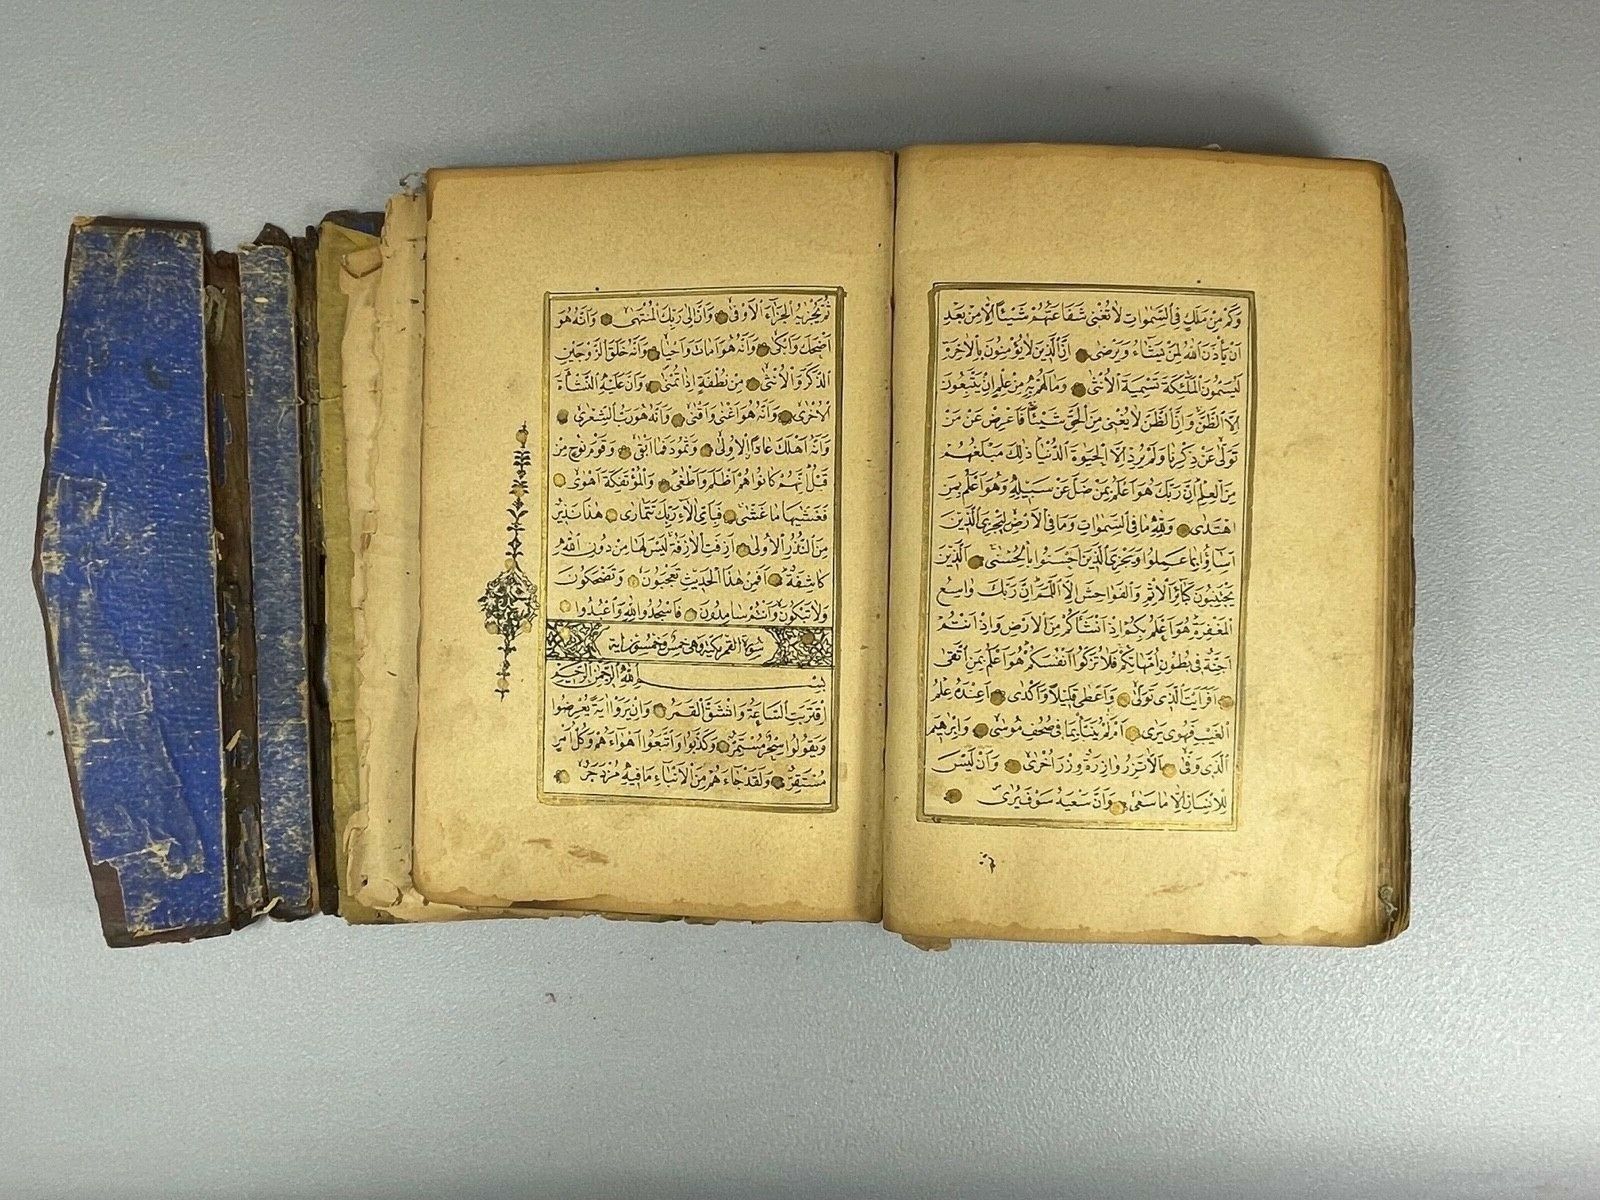 وَكَمْ مِنْ مَلَكٍ فِي السَّمٰوَاتِ لَا تُغْنِي شَفَاعَتُهُمْ شَيْئًا اِلَّا مِنْ بَعْدِ
اَنْ يَأْذَنَ اللّٰهُ لِمَنْ يَشَاءُ وَيَرْضٰى اِنَّ الَّذِينَ لَا يُؤْمِنُونَ بِالْاٰخِرَةِ
لَيُسَمُّونَ الْمَلٰئِكَةَ تَسْمِيَةَ الْاُنْثٰى وَمَا لَهُمْ بِهِ مِنْ عِلْمٍ اِنْ يَتَّبِعُونَ
اِلَّا الظَّنَّ وَاِنَّ الظَّنَّ لَا يُغْنِي مِنَ الْحَقِّ شَيْئًا فَاَعْرِضْ عَنْ مَنْ
تَوَلّٰى عَنْ ذِكْرِنَا وَلَمْ يُرِدْ اِلَّا الْحَيٰوةَ الدُّنْيَا ذٰلِكَ مَبْلَغُهُمْ
مِنَ الْعِلْمِ اِنَّ رَبَّكَ هُوَ اَعْلَمُ بِمَنْ ضَلَّ عَنْ سَبِيلِهِ وَهُوَ اَعْلَمُ بِمَنِ
اهْتَدٰى وَلِلّٰهِ مَا فِي السَّمٰوَاتِ وَمَا فِي الْاَرْضِ لِيَجْزِيَ الَّذِينَ
اَسَاؤُا بِمَا عَمِلُوا وَيَجْزِيَ الَّذِينَ اَحْسَنُوا بِالْحُسْنٰى اَلَّذِينَ
يَجْتَنِبُونَ كَبَائِرَ الْاِثْمِ وَالْفَوَاحِشَ اِلَّا اللَّمَمَ اِنَّ رَبَّكَ وَاسِعُ
الْمَغْفِرَةِ هُوَ اَعْلَمُ بِكُمْ اِذْ اَنْشَاَكُمْ مِنَ الْاَرْضِ وَاِذْ اَنْتُمْ
اَجِنَّةٌ فِي بُطُونِ اُمَّهَاتِكُمْ فَلَا تُزَكُّوا اَنْفُسَكُمْ هُوَ اَعْلَمُ بِمَنِ اتَّقٰى
اَفَرَاَيْتَ الَّذِي تَوَلّٰى وَاَعْطٰى قَلِيلًا وَاَكْدٰى اَعِنْدَهُ عِلْمُ
الْغَيْبِ فَهُوَ يَرٰى اَمْ لَمْ يُنَبَّأْ بِمَا فِي صُحُفِ مُوسٰى وَاِبْرٰهِيمَ
الَّذِي وَفّٰى اَلَّا تَزِرُ وَازِرَةٌ وِزْرَ اُخْرٰى وَاَنْ لَيْسَ
لِلْاِنْسَانِ اِلَّا مَا سَعٰى وَاَنَّ سَعْيَهُ سَوْفَ يُرٰى
ثُمَّ
ثُمَّ يُجْزٰيهُ الْجَزَاءَ الْاَوْفٰى وَاَنَّ اِلٰى رَبِّكَ الْمُنْتَهٰى وَاَنَّهُ هُوَ
اَضْحَكَ وَاَبْكٰى وَاَنَّهُ هُوَ اَمَاتَ وَاَحْيَا وَاَنَّهُ خَلَقَ الزَّوْجَيْنِ
الذَّكَرَ وَالْاُنْثٰى مِنْ نُطْفَةٍ اِذَا تُمْنٰى وَاَنَّ عَلَيْهِ النَّشْاَةَ
الْاُخْرٰى وَاَنَّهُ هُوَ اَغْنٰى وَاَقْنٰى وَاَنَّهُ هُوَ رَبُّ الشِّعْرٰى
وَاَنَّهُ اَهْلَكَ عَادًا الْاُولٰى وَثَمُودَ فَمَا اَبْقٰى وَقَوْمَ نُوحٍ مِنْ
قَبْلُ اِنَّهُمْ كَانُوا هُمْ اَظْلَمَ وَاَطْغٰى وَالْمُؤْتَفِكَةَ اَهْوٰى
فَغَشّٰيهَا مَا غَشّٰى فَبِاَيِّ اٰلَاءِ رَبِّكَ تَتَمَارٰى هٰذَا نَذِيرٌ
مِنَ النُّذُرِ الْاُولٰى اَزِفَتِ الْاٰزِفَةُ لَيْسَ لَهَا مِنْ دُونِ اللّٰهِ
كَاشِفَةٌ اَفَمِنْ هٰذَا الْحَدِيثِ تَعْجَبُونَ وَتَضْحَكُونَ
وَلَا تَبْكُونَ وَاَنْتُمْ سَامِدُونَ فَاسْجُدُوا لِلّٰهِ وَاعْبُدُوا
سورة القمر مكية وهي خمس وخمسون اية
بِسْمِ اللّٰهِ الرَّحْمٰنِ الرَّحِيمِ
اِقْتَرَبَتِ السَّاعَةُ وَانْشَقَّ الْقَمَرُ وَاِنْ يَرَوْا اٰيَةً يُعْرِضُوا
وَيَقُولُوا سِحْرٌ مُسْتَمِرٌّ وَكَذَّبُوا وَاتَّبَعُوا اَهْوَاءَهُمْ وَكُلُّ اَمْرٍ
مُسْتَقِرٌّ وَلَقَدْ جَاءَهُمْ مِنَ الْاَنْبَاءِ مَا فِيهِ مُزْدَجَرٌ